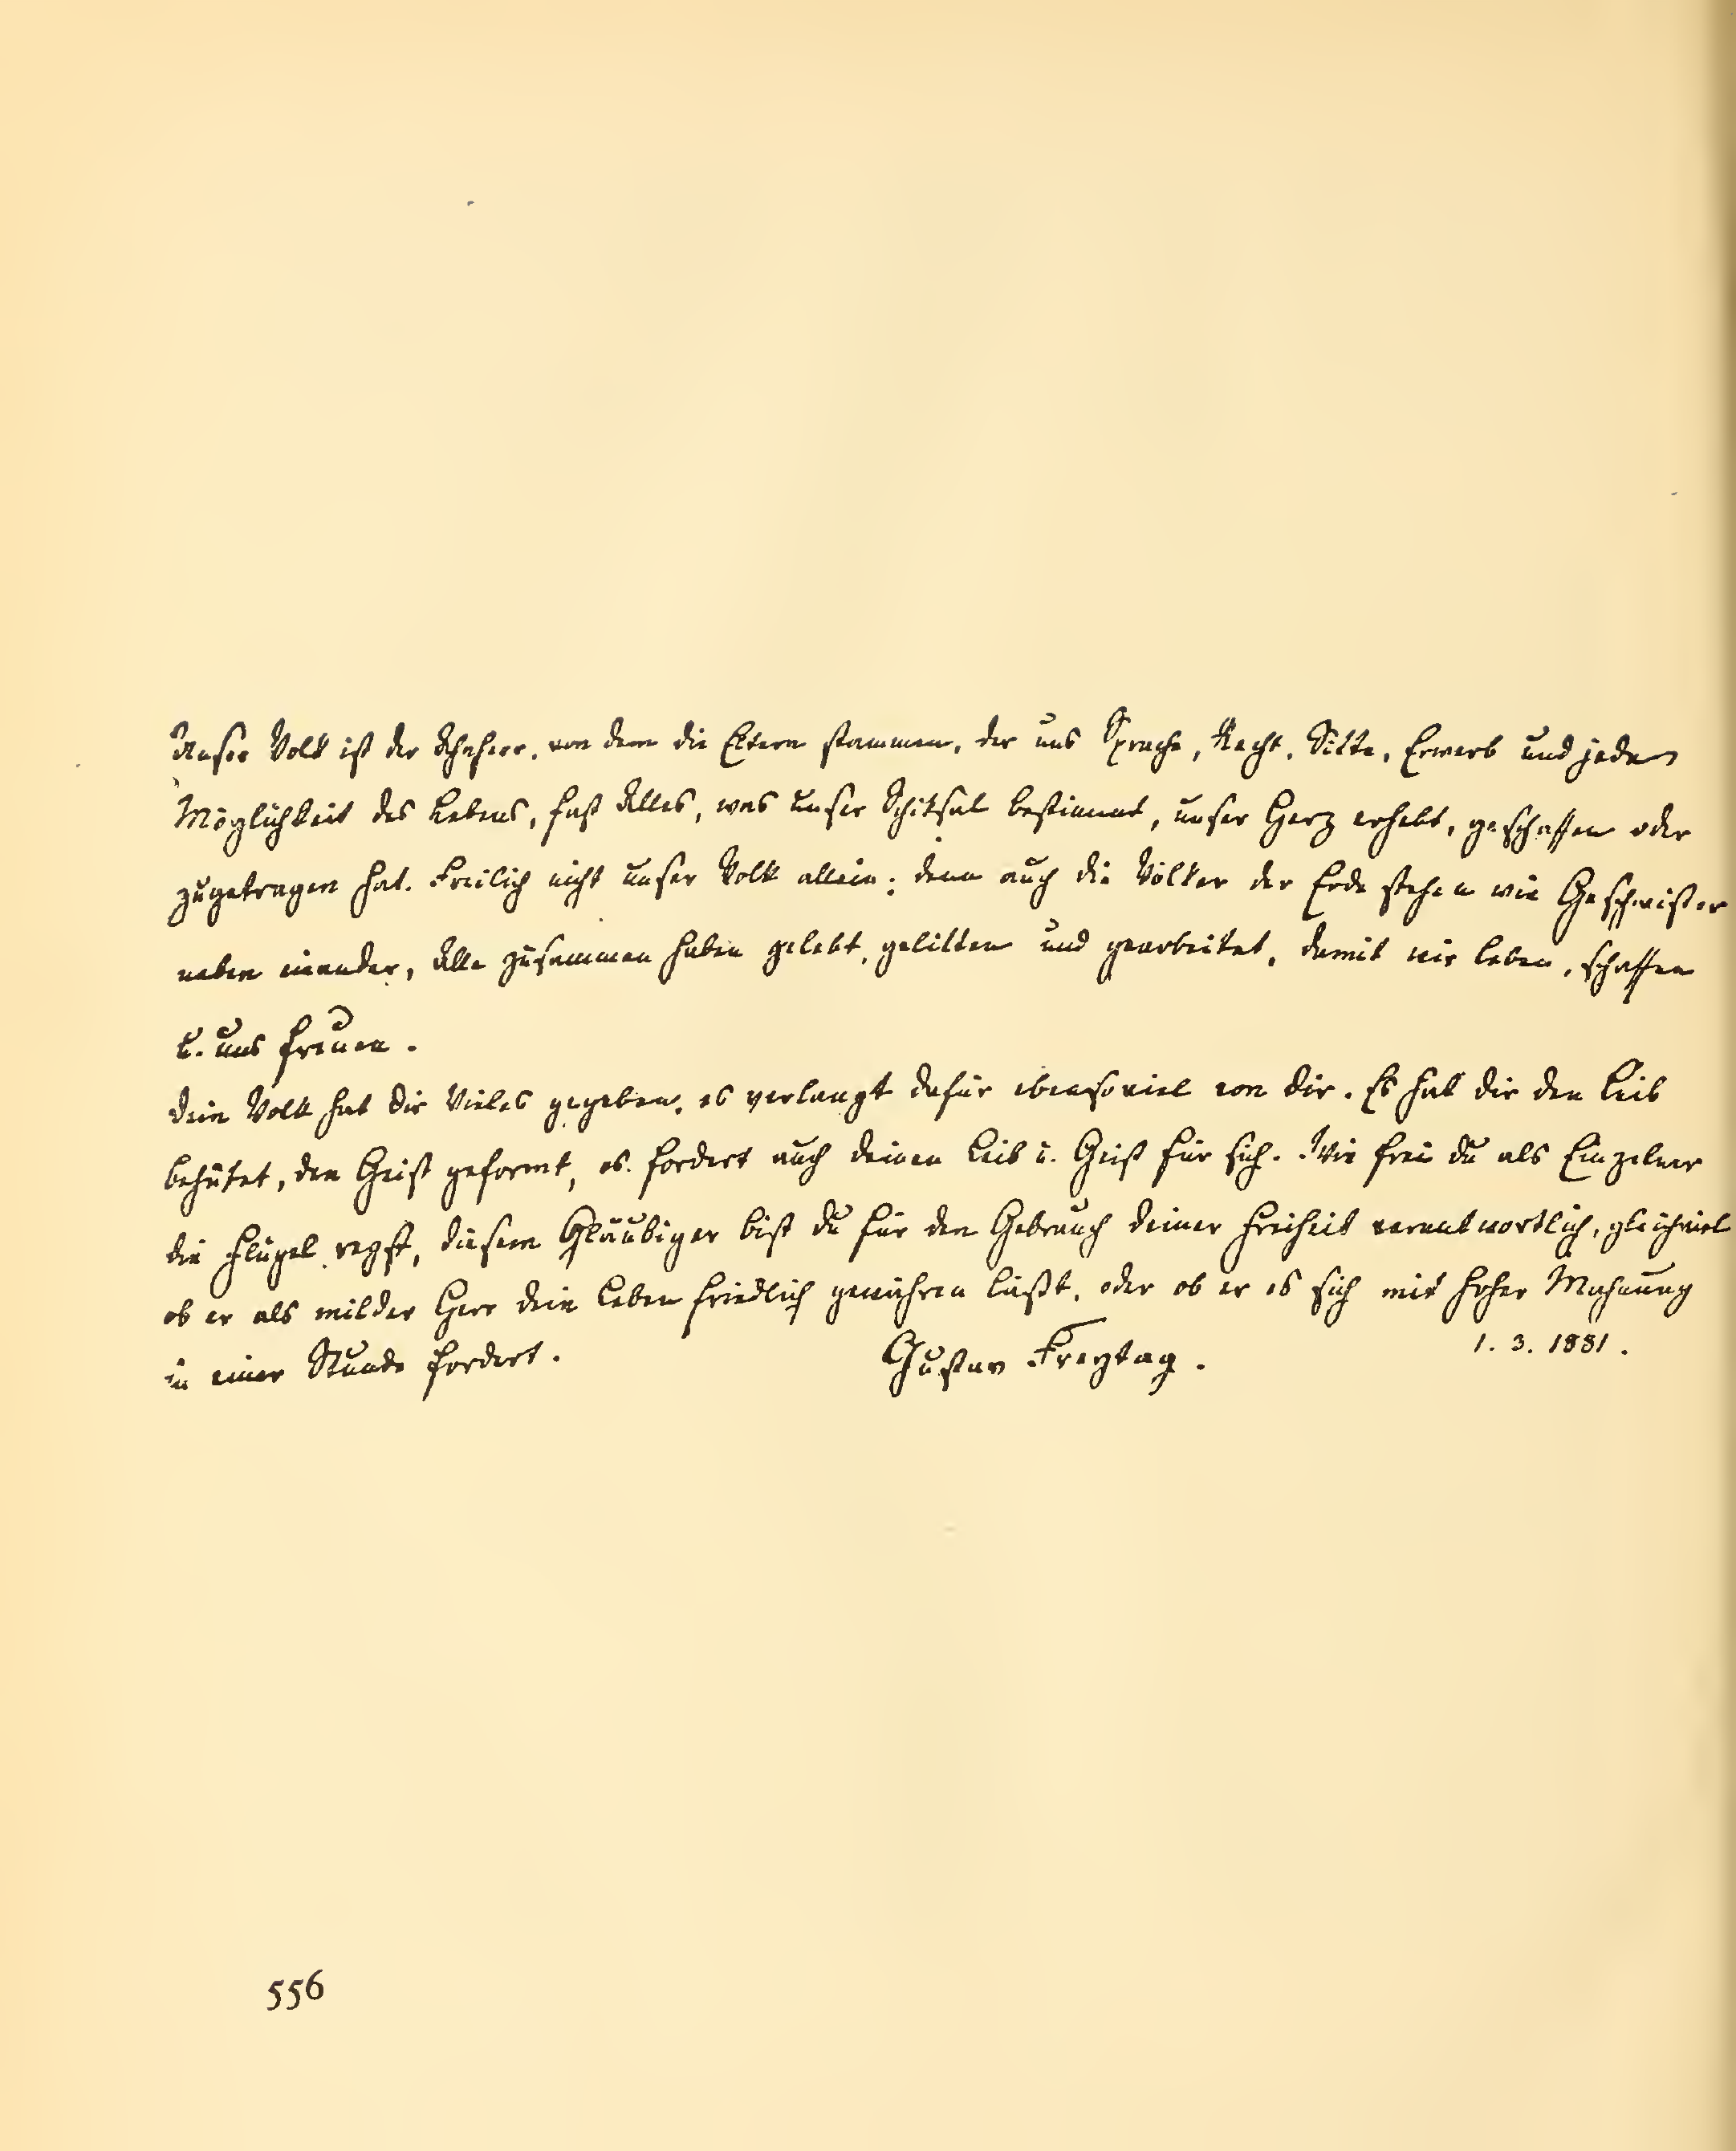 Unser Volk ist der Ahnherr, von dem die Eltern stammen, der uns Sprache, Recht, Sitte, Erwerb und jede
Möglichkeit des Lebens, fast Alles, was unser Schiksal bestimmt, unser Herz erhebt, geschaffen oder
zugetragen hat. Freilich nicht unser Volk allein; denn auch die Völker der Erde stehen wie Geschwister
neben einander, Alle zusammen haben gelebt, gelitten und gearbeitet, damit wir leben, schaffen
u. uns freuen.
Dein Volk hat dir Vieles gegeben, es verlangt dafür ebensoviel von dir. Es hat dir den Leib
behütet, den Geist geformt, es fordert auch deinen Leib u. Geist für sich. Wie frei du als Einzelner
die Flügel regst, diesem Gläubiger bist du für den Gebrauch deiner Freiheit verantwortlich, gleichviel
ob er als milder Herr dein Leben friedlich gewähren läßt, oder ob er es sich mit hoher Mahnung
in einer Stunde fordert.
Gustav Freytag.
1. 3. 1881.
556